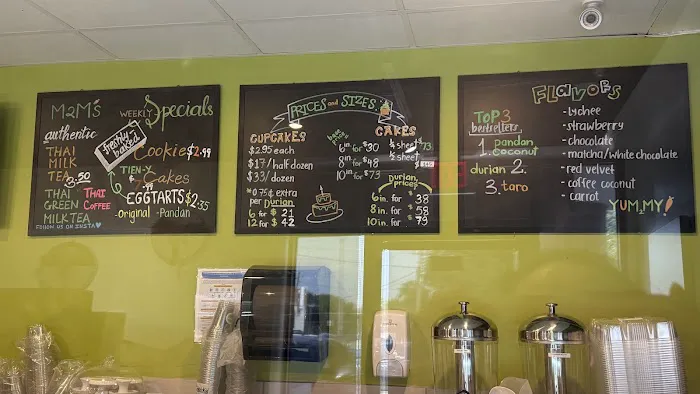 M2M's
WEEKLY Specials
authentic
THAI
MILK
TEA
3.50
THAI
GREEN
MILK TEA
THAI
COFFEE
FOLLOW US ON INSTA
freshly
baked
Cookie $2.99
TIEN-Y
Cakes
EGGTARTS $2.35
-Original -Pandan
PRICES and SIZES
CUPCAKES
$2.95 each
$17/half dozen
$33/dozen
*0.75¢ extra
per Durian
6 for $21
12 for $42
CAKES
6in for $30
8in for $48
10in for $73
1/4 sheet $73
1/2 sheet
Durian
prices
6in. for $38
8in. for $58
10in. for $79
FLAVORS
TOP 3
bestsellers
1. pandan
coconut
durian 2.
3. taro
-lychee
-strawberry
-chocolate
-matcha/white chocolate
-red velvet
-coffee coconut
-carrot
YUMMY!